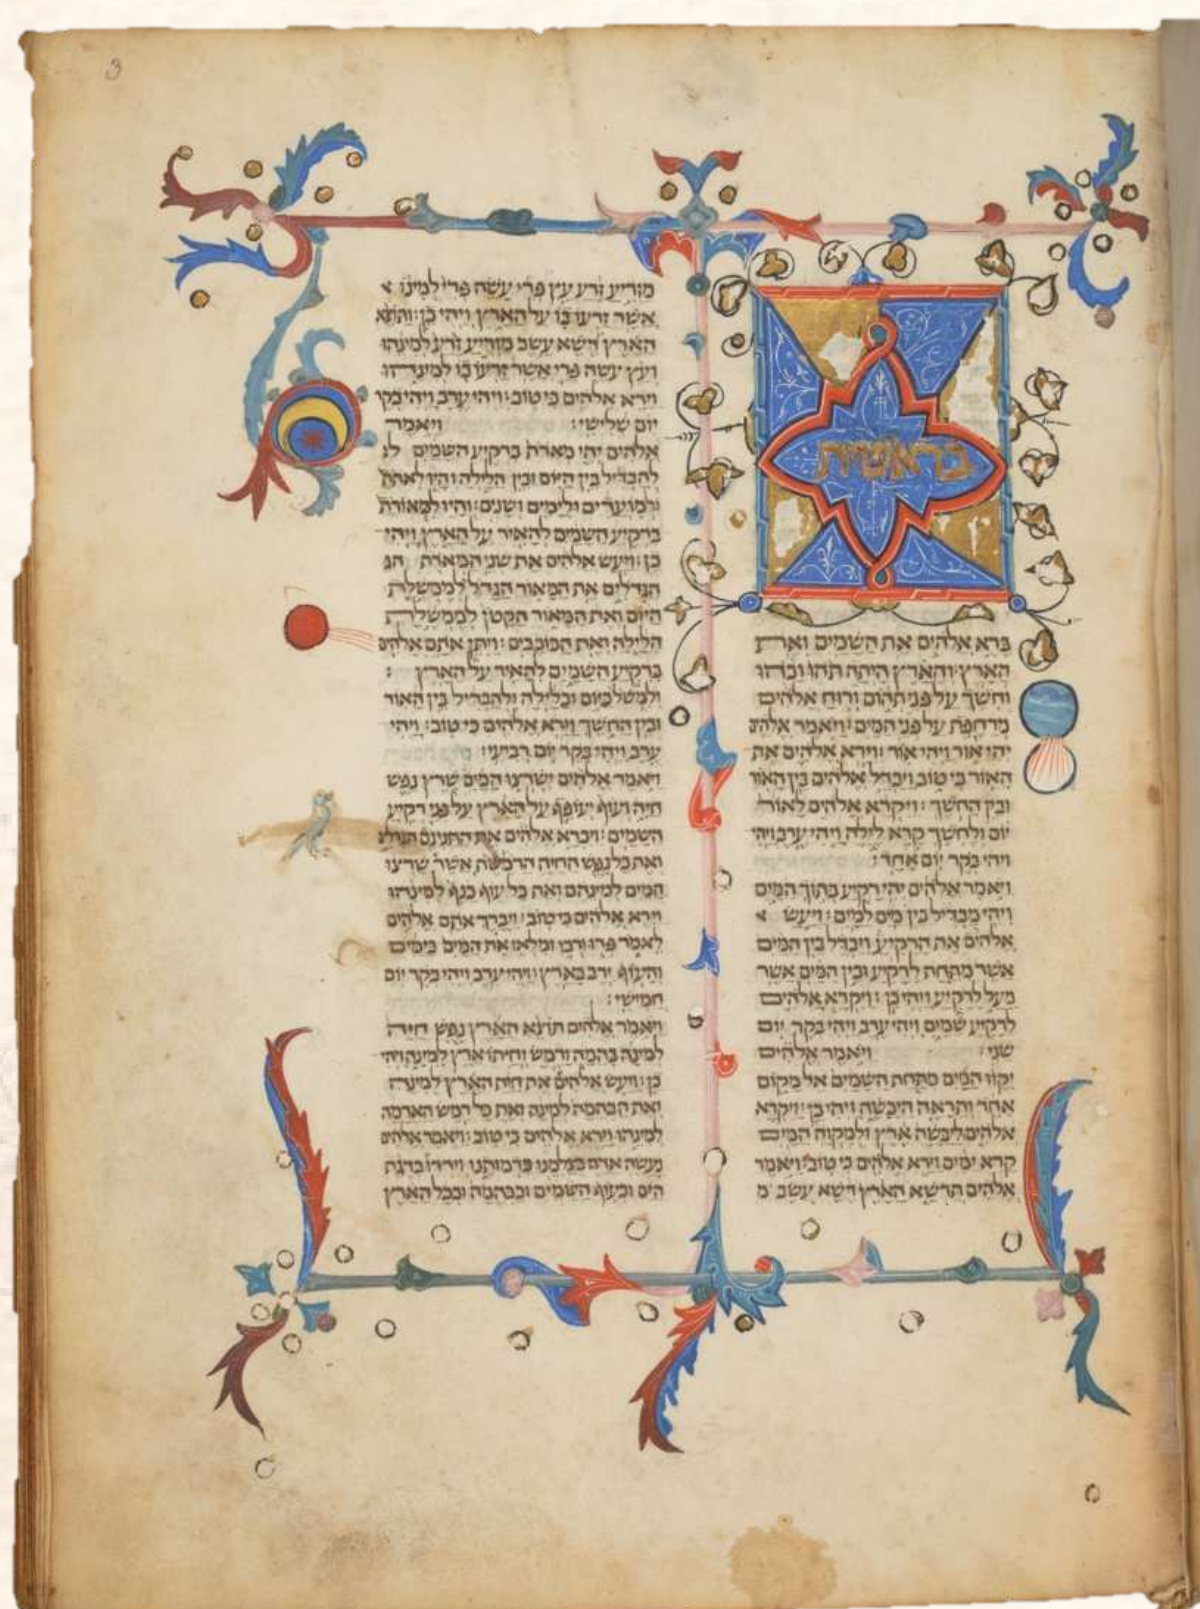 3
בראשית
ברא אלהים את השמים ואת
הארץ׃ והארץ היתה תהו ובהו
וחשך על פני תהום ורוח אלהים
מרחפת על פני המים׃ ויאמר אלהים
יהי אור ויהי אור׃ וירא אלהים את
האור כי טוב ויבדל אלהים בין האור
ובין החשך׃ ויקרא אלהים לאור
יום ולחשך קרא לילה ויהי ערב ויהי
ויהי בקר יום אחד׃
ויאמר אלהים יהי רקיע בתוך המים
ויהי מבדיל בין מים למים׃ ויעש א
אלהים את הרקיע ויבדל בין המים
אשר מתחת לרקיע ובין המים אשר
מעל לרקיע ויהי כן׃ ויקרא אלהים
לרקיע שמים ויהי ערב ויהי בקר יום
שני׃ ויאמר אלהים
יקוו המים מתחת השמים אל מקום
אחד ותראה היבשה ויהי כן׃ ויקרא
אלהים ליבשה ארץ ולמקוה המים
קרא ימים וירא אלהים כי טוב׃ ויאמר
אלהים תדשא הארץ דשא עשב מ
מזריע זרע עץ פרי עשה פרי למינו א
אשר זרעו בו על הארץ ויהי כן׃ ותוצא
הארץ דשא עשב מזריע זרע למינהו
ועץ עשה פרי אשר זרעו בו למינהו
וירא אלהים כי טוב׃ ויהי ערב ויהי בקר
יום שלישי׃ ויאמר
אלהים יהי מארת ברקיע השמים
להבדיל בין היום ובין הלילה והיו לאתת
ולמועדים ולימים ושנים׃ והיו למאורת
ברקיע השמים להאיר על הארץ ויהי
כן׃ ויעש אלהים את שני המארת הג
הגדלים את המאור הגדל לממשלת
היום ואת המאור הקטן לממשלת
הלילה ואת הכוכבים׃ ויתן אתם אלהים
ברקיע השמים להאיר על הארץ׃
ולמשל ביום ובלילה ולהבדיל בין האור
ובין החשך וירא אלהים כי טוב׃ ויהי
ערב ויהי בקר יום רביעי׃
ויאמר אלהים ישרצו המים שרץ נפש
חיה ועוף יעופף על הארץ על פני רקיע
השמים׃ ויברא אלהים את התנינם הגדלים
ואת כל נפש החיה הרמשת אשר שרצו
המים למינהם ואת כל עוף כנף למינהו
וירא אלהים כי טוב׃ ויברך אתם אלהים
לאמר פרו ורבו ומלאו את המים בימים
והעוף ירב בארץ׃ ויהי ערב ויהי בקר יום
חמישי׃
ויאמר אלהים תוצא הארץ נפש חיה
למינה בהמה ורמש וחיתו ארץ למינה ויהי
כן׃ ויעש אלהים את חית הארץ למינה
ואת הבהמה למינה ואת כל רמש האדמה
למינהו וירא אלהים כי טוב׃ ויאמר אלהים
נעשה אדם בצלמנו כדמותנו וירדו בדגת
הים ובעוף השמים ובבהמה ובכל הארץ